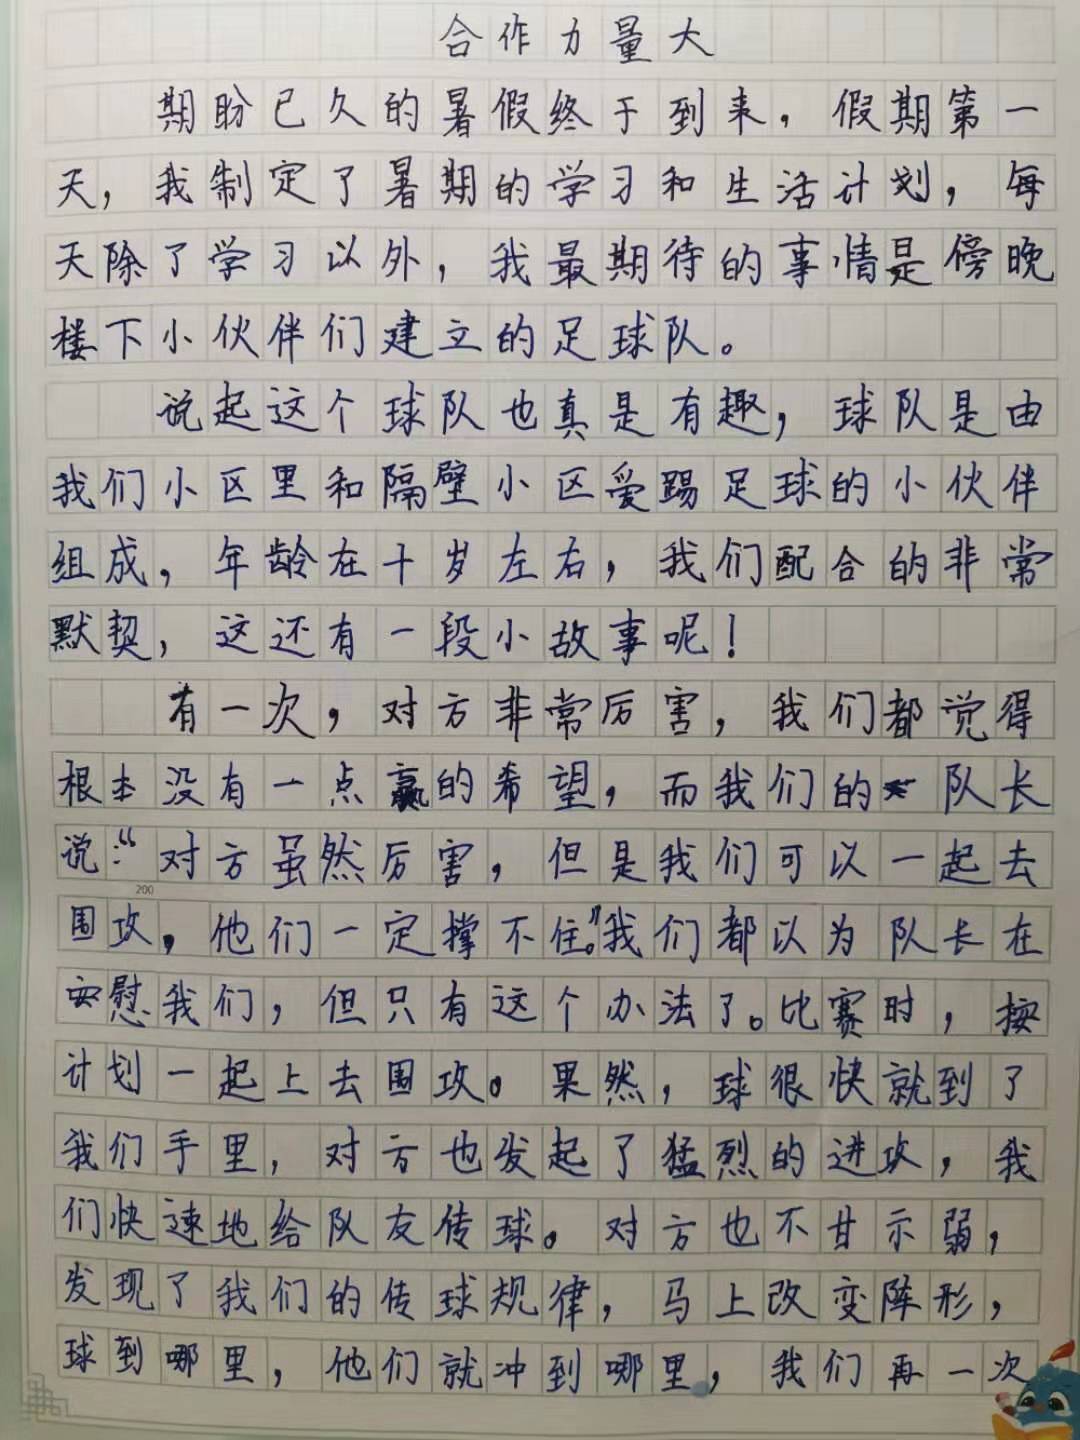 合作力量大
期盼已久的暑假终于到来，假期第一
天，我制定了暑期的学习和生活计划，每
天除了学习以外，我最期待的事情是傍晚
楼下小伙伴们建立的足球队。
说起这个球队也真是有趣，球队是由
我们小区里和隔壁小区爱踢足球的小伙伴
组成，年龄在十岁左右，我们配合的非常
默契，这还有一段小故事呢！
有一次，对方非常厉害，我们都觉得
根本没有一点赢的希望，而我们的队长
说：“对方虽然厉害，但是我们可以一起去
200
围攻，他们一定撑不住。”我们都以为队长在
安慰我们，但只有这个办法了。比赛时，按
计划一起上去围攻。果然，球很快就到了
我们手里，对方也发起了猛烈的进攻，我
们快速地给队友传球。对方也不甘示弱，
发现了我们的传球规律，马上改变阵形，
球到哪里，他们就冲到哪里，我们再一次